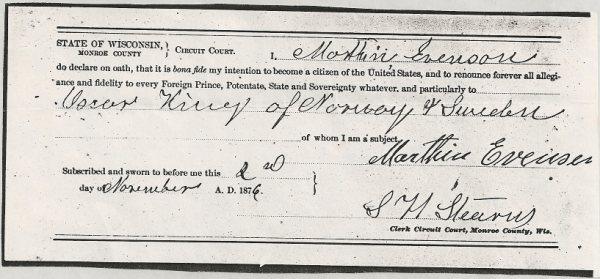 STATE OF WISCONSIN, } CIRCUIT COURT. I, Marthin Evenson
MONROE COUNTY
do declare on oath, that it is bona fide my intention to become a citizen of the United States, and to renounce forever all allegi-
ance and fidelity to every Foreign Prince, Potentate, State and Sovereignty whatever, and particularly to
Oscar King of Norway & Sweden
of whom I am a subject.
Marthin Evensen
Subscribed and sworn to before me this 2nd
day of November A. D. 1876. }
S H Stearns
Clerk Circuit Court, Monroe County, Wis.